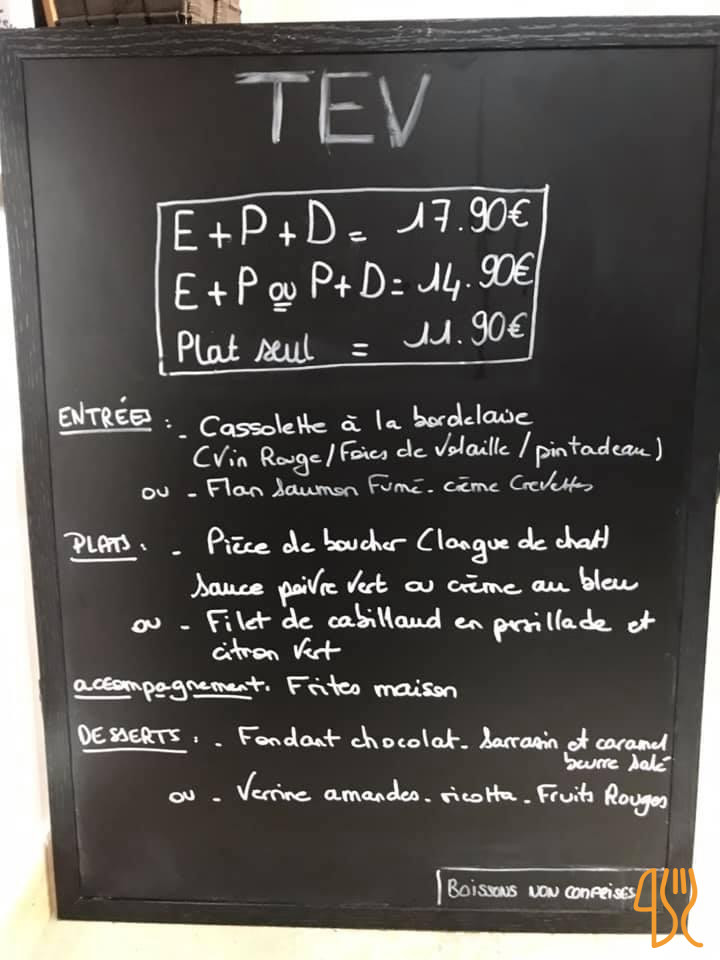 TEV
E + P + D = 17.90€
E + P ou P + D = 14.90€
Plat seul = 11.90€
ENTRÉES : - Cassolette à la bordelaise
(Vin Rouge / Foies de Volaille / pintadeau)
ou - Flan Saumon Fumé - crème Crevettes
PLATS : - Pièce de boucher (langue de chat)
sauce poivre vert ou crème au bleu
ou - Filet de cabillaud en persillade et
citron vert
accompagnement. Frites maison
DESSERTS : - Fondant chocolat - Sarrasin et caramel
beurre salé
ou - Verrine amandes - ricotta - Fruits Rouges
BOISSONS NON COMPRISES